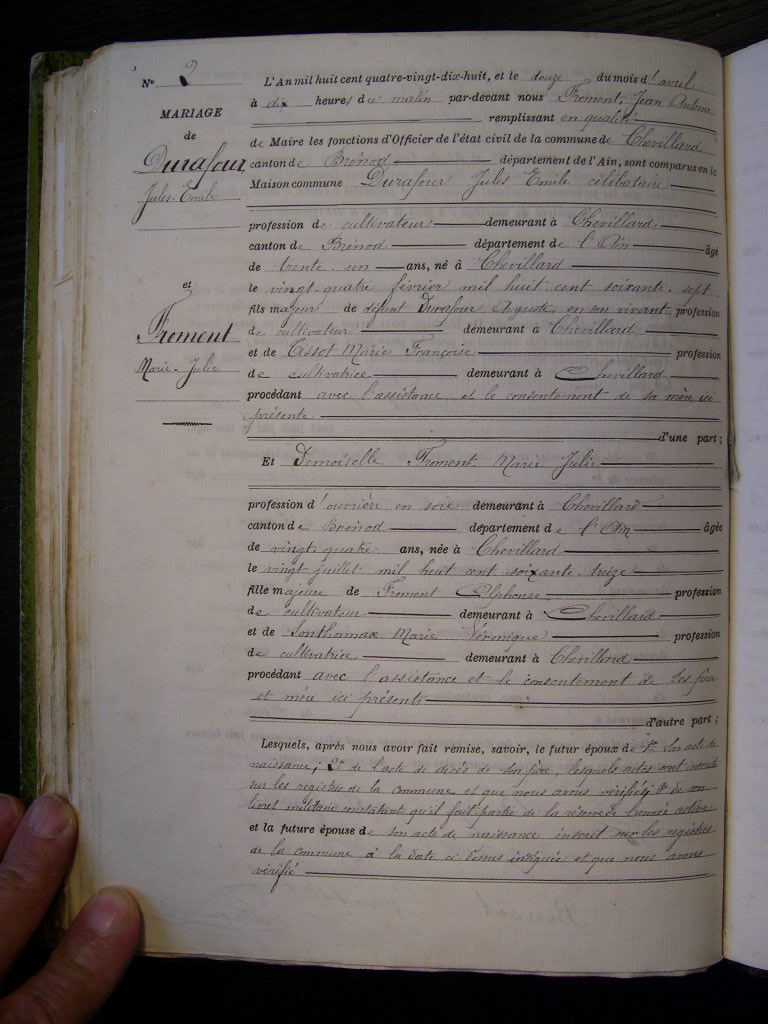 N° 2
MARIAGE
de
Durafour
Jules-Emile
et
Froment
Marie-Julie
L'An mil huit cent quatre-vingt-dix-huit, et le douze du mois d'avril
à dix heures du matin par-devant nous Froment, Jean Antoine
remplissant en qualité
de Maire les fonctions d'Officier de l'état civil de la commune de Chevillard
canton de Brénod département de l'Ain, sont comparus en la
Maison commune Durafour Jules Emile célibataire
profession de cultivateur demeurant à Chevillard
canton de Brénod département de l'Ain âgé
de trente-un ans, né à Chevillard
le vingt-quatre février mil huit cent soixante-sept
fils majeur de défunt Durafour Auguste, en son vivant, profession
de cultivateur demeurant à Chevillard
et de Tissot Marie Françoise profession
de cultivatrice demeurant à Chevillard
procédant avec l'assistance et le consentement de sa mère ici
présente
d'une part;
Et Demoiselle Froment Marie Julie
profession d'ouvrière en soie demeurant à Chevillard
canton de Brénod département de l'Ain âgée
de vingt-quatre ans, née à Chevillard
le vingt juillet mil huit cent soixante-treize
fille majeure de Froment Alphonse profession
de cultivateur demeurant à Chevillard
et de Sonthonnax Marie Véronique profession
de cultivatrice demeurant à Chevillard
procédant avec l'assistance et le consentement de ses père
et mère ici présents
d'autre part;
Lesquels, après nous avoir fait remise, savoir, le futur époux de 1° son acte de
naissance; 2° de l'acte de décès de son père, lesquels actes sont inscrits
sur les registres de la commune et que nous avons vérifiés; 3° de son
livret militaire constatant qu'il fait partie de la réserve de l'armée active
et la future épouse de son acte de naissance inscrit sur les registres
de la commune à la date ci-dessus indiquée et que nous avons
vérifié